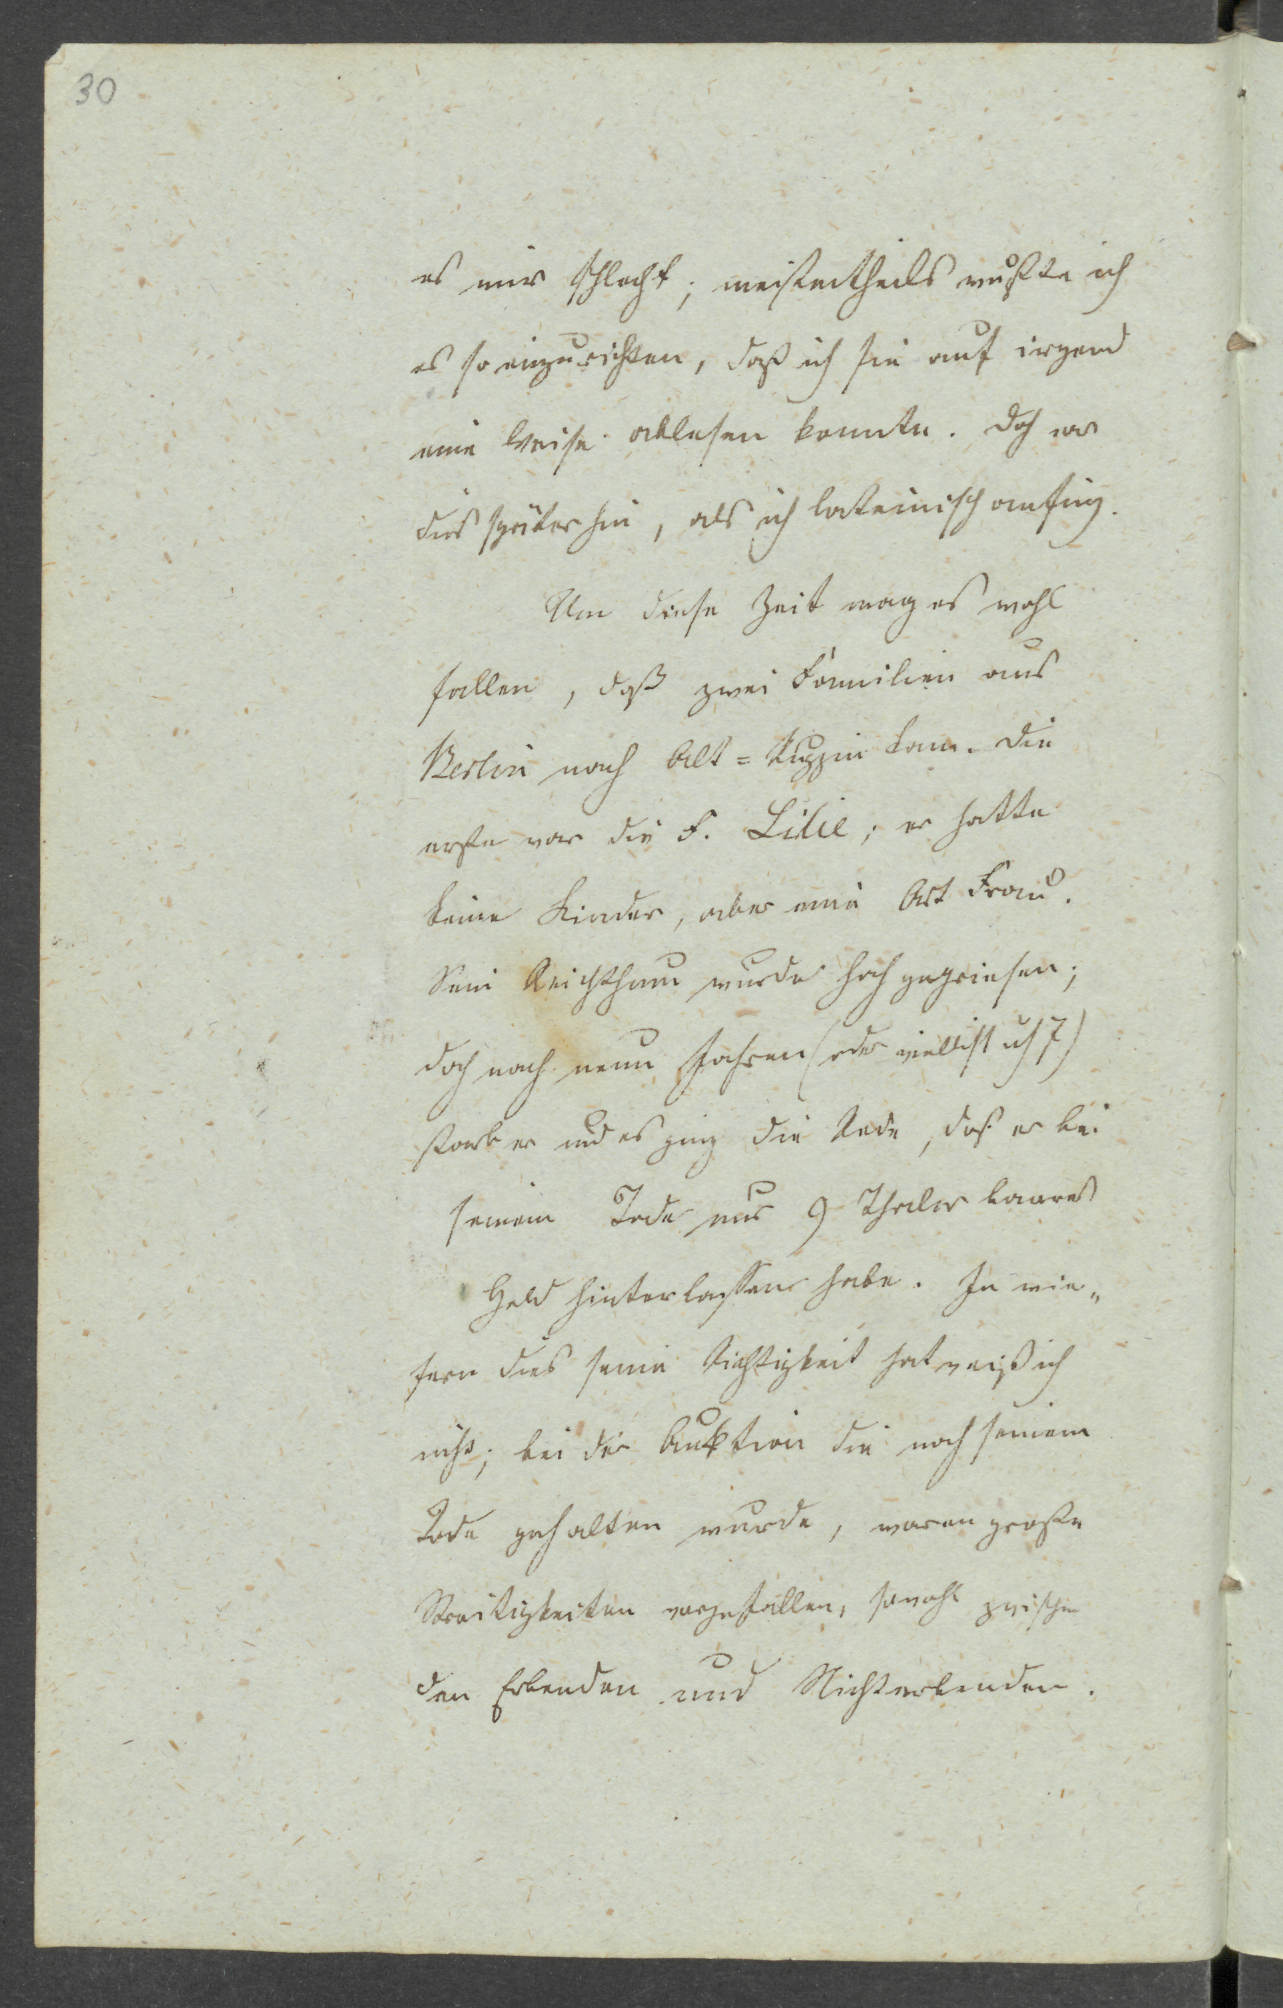 30
es mir schlecht; meistentheils wußte ich
es so einzurichten, daß ich sie auf irgend
eine Weise ablesen konnte. Doch war
dies späterhin, als ich lateinisch anfing.
Um diese Zeit mag es wohl
fallen, daß zwei Familien aus
Berlin nach Alt=Ruppin kam. Die
erste war die F. Lilie; er hatte
keine Kinder, aber eine Art Frau.
Sein Reichthum wurde hoch gepriesen;
doch nach neun Jahren (oder vielleicht 7)
starb er und es ging die Rede, daß er bei
seinem Tode nur 9 Thaler baares
Geld hinterlassen habe. In wie„
fern dies seine Richtigkeit hat weiß ich
nicht; bei der Auktion die nach seinem
Tode gehalten wurde, waren große
Streitigkeiten vorgefallen, sowohl zwischen
den Erbenden und Nichterbenden.